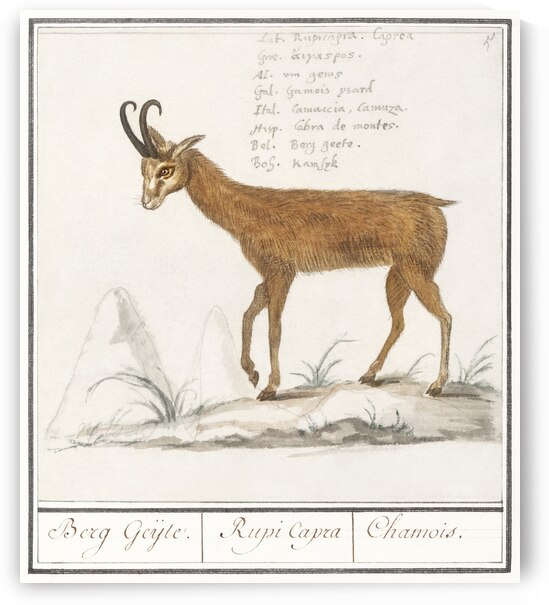 Lat. Rupicapra. Caprea
Gre. αἰγαςρος.
Al. vin gems
Gal. Gamois ysard
Ital. Camuccia, Camuza.
Hisp. Cabra de montes.
Bel. Berg geete.
Boh. Kamsyk
Berg Geÿte.
Rupi Capra
Chamois.